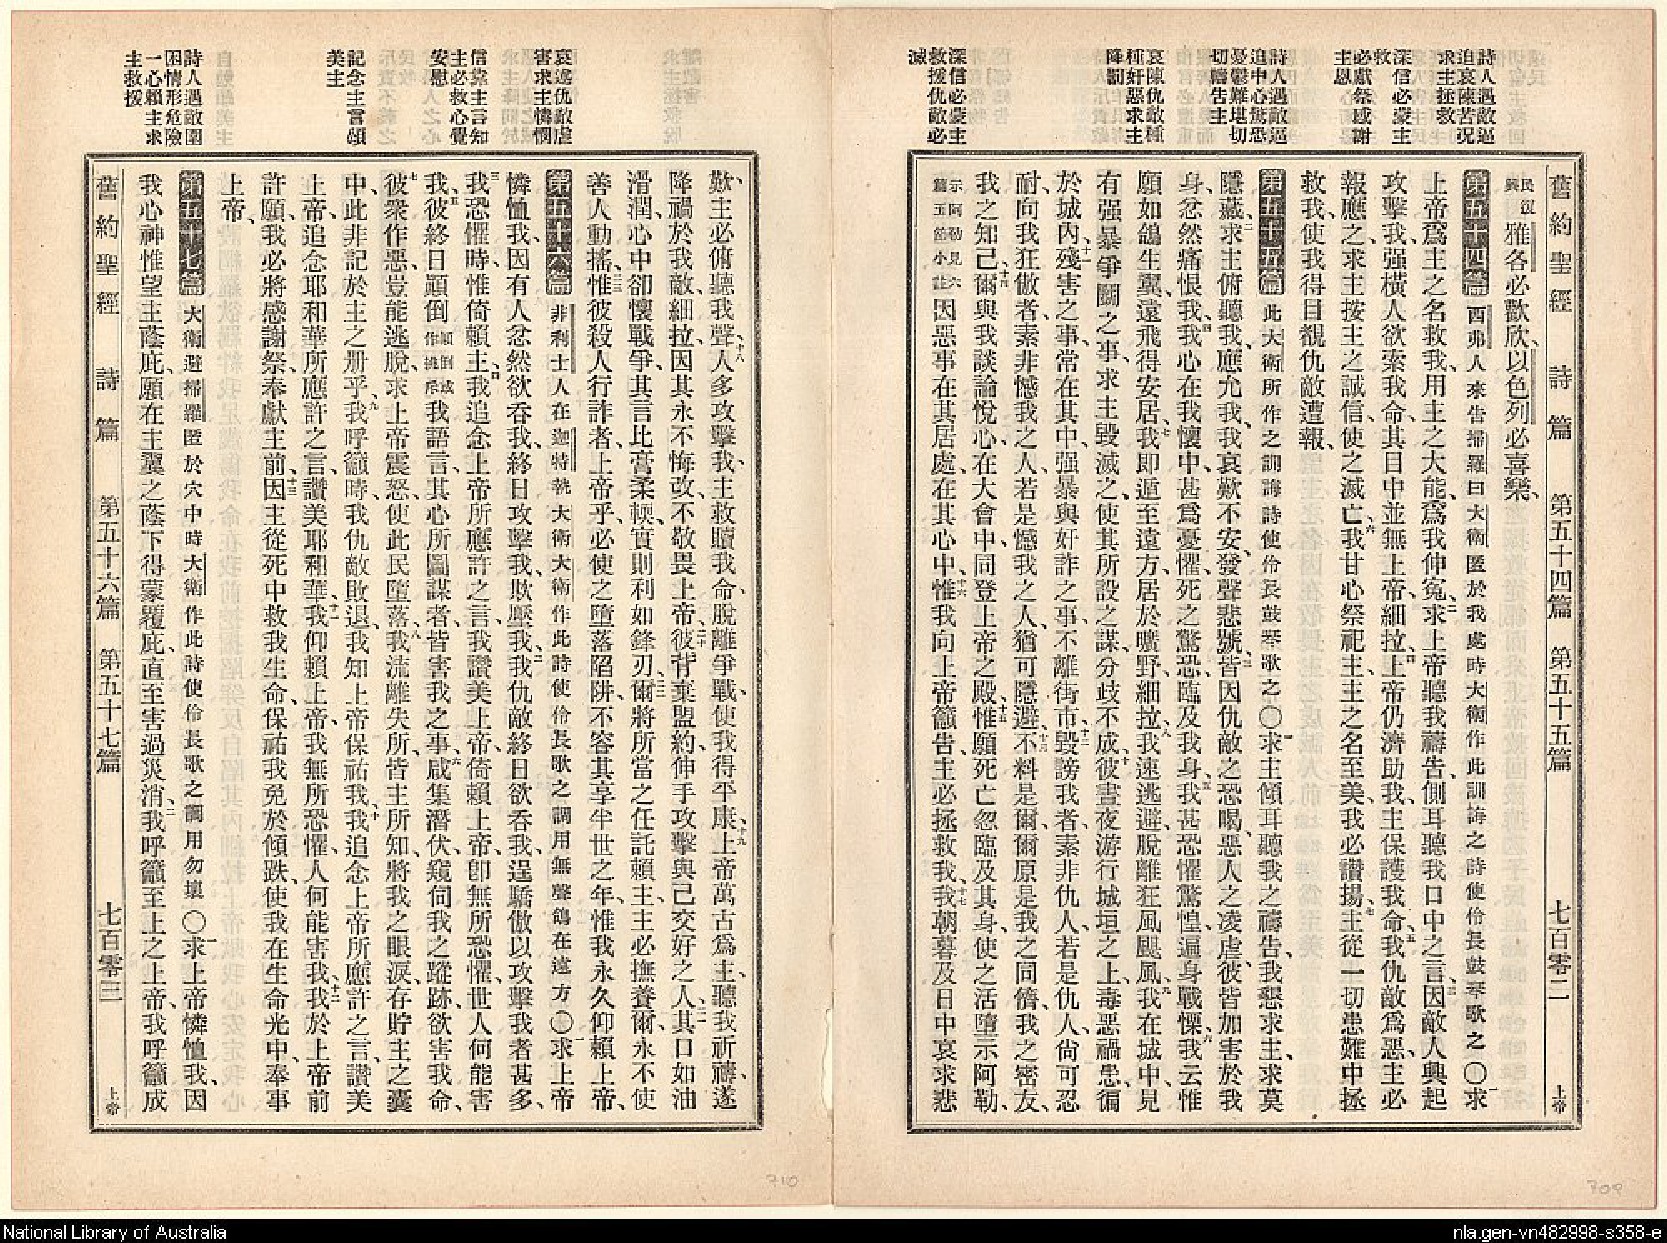 詩人遇敵逼
迫哀陳苦况
求主拯救
深信必蒙主
救
必獻祭感謝
主恩
詩人遇敵逼
迫中心驚恐
憂鬱難堪切
切禱告主
哀陳仇敵種
種奸惡求主
降罰
深信必蒙主
救援仇敵必
滅
舊約聖經 詩篇 第五十四篇 第五十五篇 七百零二 上帝
民返雅各必歡欣、以色列必喜樂、
第五十四篇 西弗人來告掃羅曰大衛匿於我處時大衛作此訓誨之詩使伶長鼓琴歌之〇一求
上帝爲主之名救我、用主之大能爲我伸寃、二求上帝聽我禱告、側耳聽我口中之言、三因敵人興起
攻擊我、强橫人欲索我命、其目中並無上帝、細拉、四上帝仍濟助我、主保護我命、五我仇敵爲惡、主必
報應之、求主按主之誠信、使之滅亡、六我甘心祭祀主、主之名至美、我必讚揚、七主從一切患難中拯
救我、使我得目覩仇敵遭報、
第五十五篇 此大衛所作之訓誨詩使伶長鼓琴歌之〇一求主傾耳聽我之禱告、我懇求主、求莫
隱藏、二求主俯聽我、應允我、我哀歎不安、發聲悲號、三皆因仇敵之恐喝、惡人之凌虐、彼皆加害於我
身、忿然痛恨我、四我心在我懷中甚爲憂懼、死之驚恐、臨及我身、五我甚恐懼驚惶、遍身戰慄、六我云、惟
願如鴿生翼、遠飛得安居、七我即遁至遠方、居於曠野、細拉、八我速逃避、脫離狂風颶風、九我在城中見
有强暴爭鬭之事、求主毀滅之、使其所設之謀、分歧不成、十彼晝夜游行城垣之上、毒惡禍患徧
於城內、十一殘害之事常在其中、强暴與奸詐之事、不離街市、十二毀謗我者、素非仇人、若是仇人、尙可忍
耐、向我狂傲者、素非憾我之人、若是憾我之人、猶可隱避、十三不料是爾、爾原是我之同儕、我之密友、
我之知己、十四爾與我談論悅心、在大會中同登上帝之殿、十五惟願死亡忽臨及其身、使之活墮示阿勒、
因惡事在其居處、在其心中、十六惟我向上帝籲告、主必拯救我、十七我朝暮及日中哀求悲
哀述仇敵虐
害求主憐憫
信靠主言知
主必救心覺
安慰
記念主言頌
美主
詩人遇敵圍
困情形危險
一心賴主求
主救援
歎、主必俯聽我聲、十八人多攻擊我、主救贖我命、脫離爭戰、使我得平康、十九上帝萬古爲主、聽我祈禱、遂
降禍於我敵、細拉、因其永不悔改、不敬畏上帝、二十彼背棄盟約、伸手攻擊與己交好之人、二一其口如油
滑潤、心中卻懷戰爭、其言比膏柔輭、實則利如鋒刃、二二爾將所當之任託賴主、主必撫養爾、永不使
善人動搖、二三惟彼殺人行詐者、上帝乎、必使之墮落陷阱、不容其享半世之年、惟我永久仰賴上帝、
第五十六篇 非利士人在迦特執大衛大衛作此詩使伶長歌之調用無聲鴿在遠方〇一求上帝
憐恤我、因有人忿然欲吞我、終日攻擊我、欺壓我、二我仇敵終日欲吞我、逞驕傲以攻擊我者甚多、
三我恐懼時、惟倚賴主、四我追念上帝所應許之言、我讚美上帝、倚賴上帝、卽無所恐懼、世人何能害
我、五彼終日顛倒顛倒或作推斥我語言、其心所圖謀者、皆害我之事、六咸集潛伏、窺伺我之蹤跡、欲害我命、
七彼衆作惡、豈能逃脫、求上帝震怒、使此民墮落、八我流離失所、皆主所知、將我之眼淚、存貯主之囊
中、此非記於主之册乎、九我呼籲時、我仇敵敗退、我知上帝保祐我、十我追念上帝所應許之言、讚美
上帝、追念耶和華所應許之言、讚美耶和華、十一我仰賴上帝、我無所恐懼、人何能害我、十二我於上帝前
許願、我必將感謝祭奉獻主前、十三因主從死中救我生命、保祐我免於傾跌、使我在生命光中、奉事
上帝、
第五十七篇 大衛避掃羅匿於穴中時大衛作此詩使伶長歌之調用勿壞〇一求上帝憐恤我、因
我心神惟望主蔭庇、願在主翼之蔭下得蒙覆庇、直至害過災消、二我呼籲至上之上帝、我呼籲成
舊約聖經 詩篇 第五十六篇 第五十七篇 七百零三 上帝
710
709
National Library of Australia
nla.gen-vn482998-s358-e